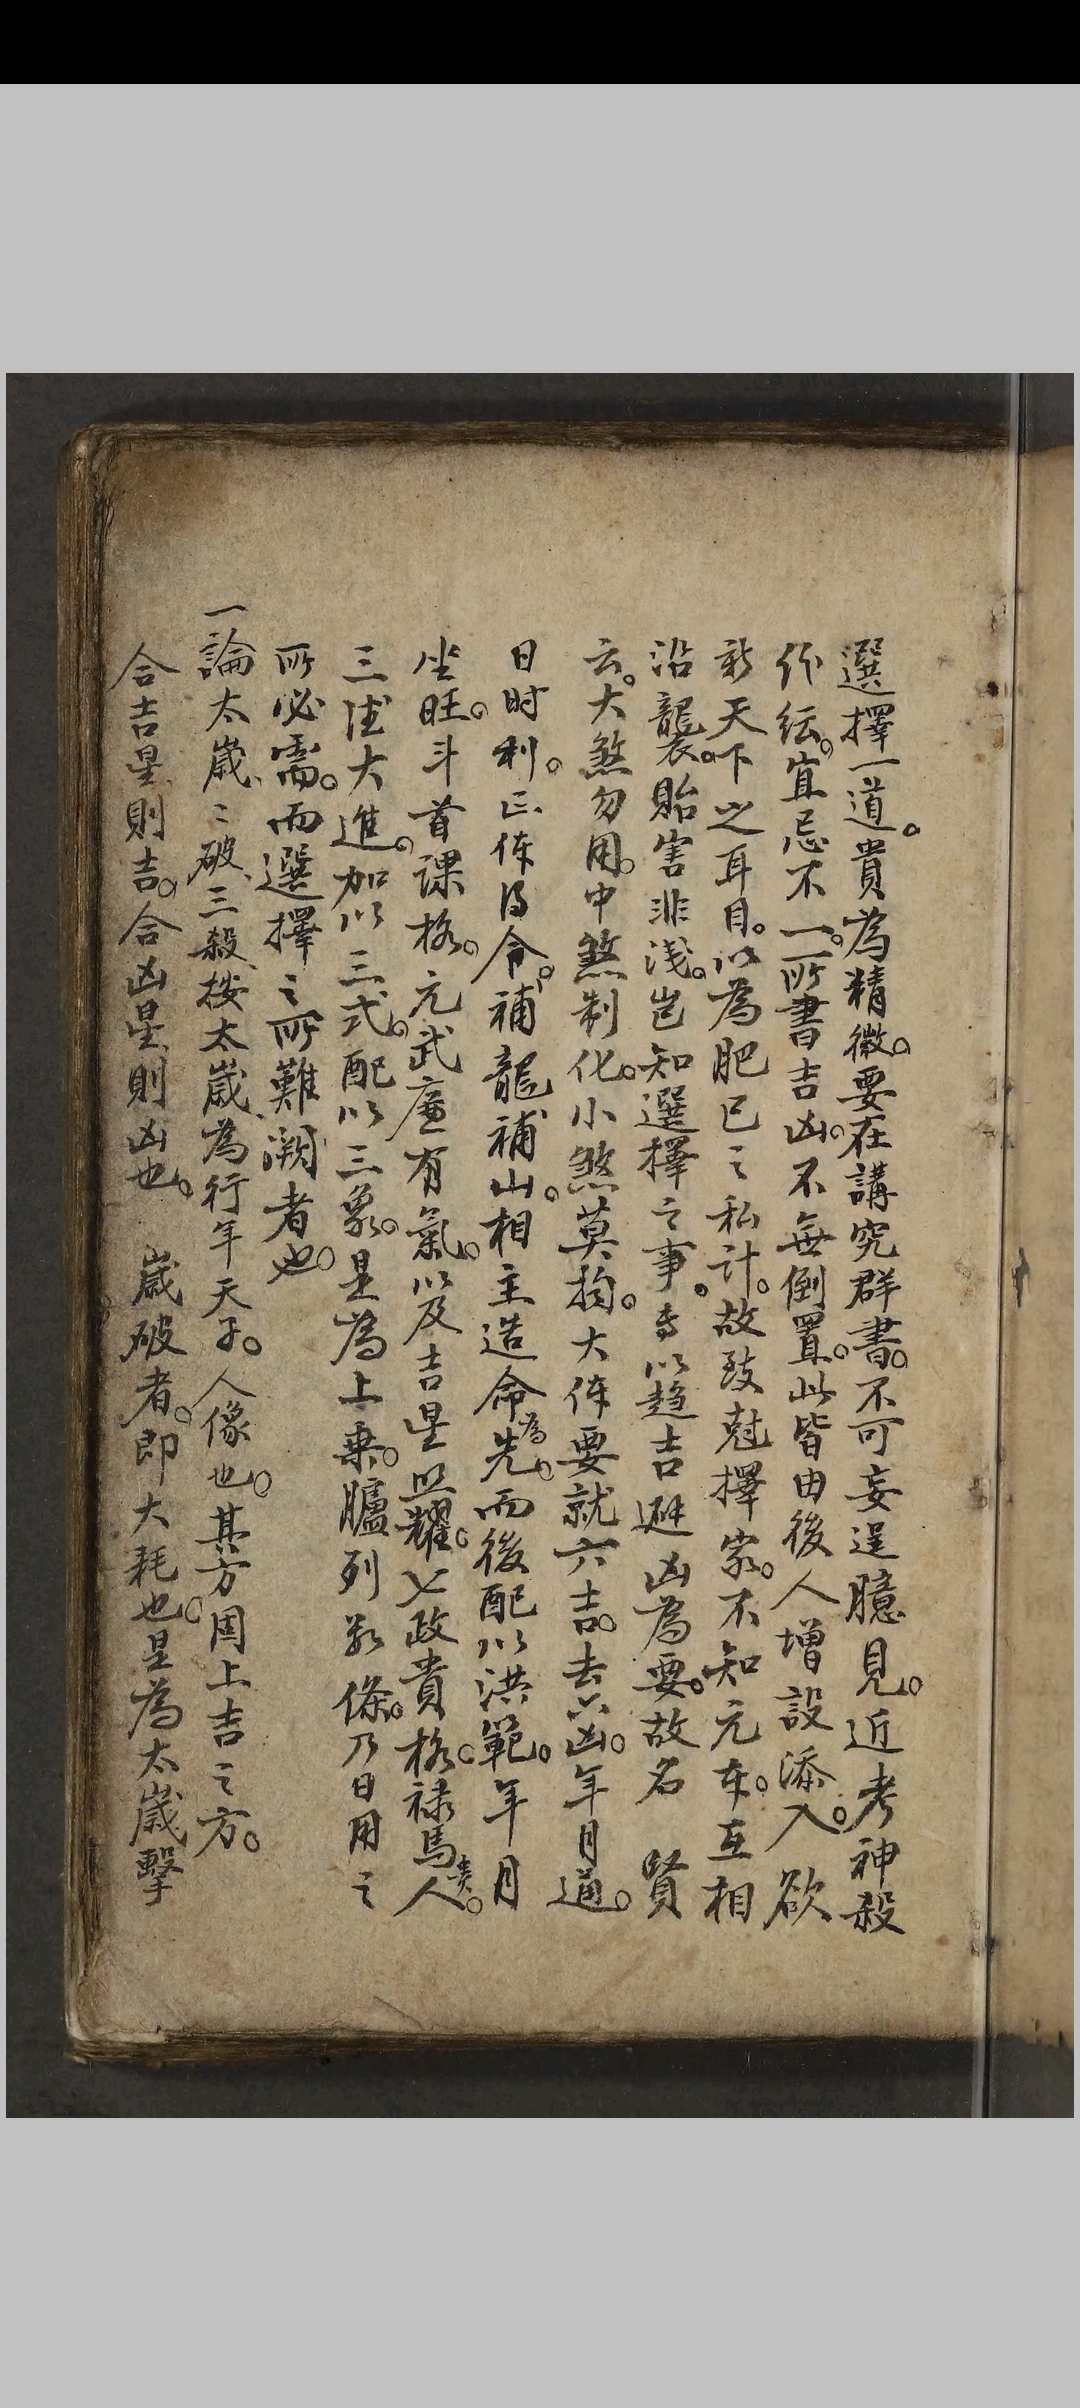 選擇一道。貴為精微。要在講究群書。不可妄逞臆見。近考神殺
紛紜。宜忌不一。所書吉凶。不無倒置。此皆由後人增設添入。欲
新天下之耳目。以為肥己之私計。故致尅擇家。不知元本。互相
沿襲。貽害非淺。豈知選擇之事。專以趨吉避凶為要。故名 賢
云。大煞勿用。中煞制化。小煞莫拘。大体要就六吉。去六凶。年月通。
日时利。正体得令。補龍補山。相主造命為先。而後配以洪範。年月
坐旺。斗首課格。元武廉有氣。以及吉星照耀。七政貴格。禄馬貴人。
三德大進。加以三式。配以三象。是為上乗。臚列数條。乃日用之
所必需。而選擇之所難闕者也。
一論太歲、〻破、三殺、按太歲為行年天子。人像也。其方固上吉之方。
合吉星則吉。合凶星則凶也。 歲破者。即大耗也。是為太歲擊